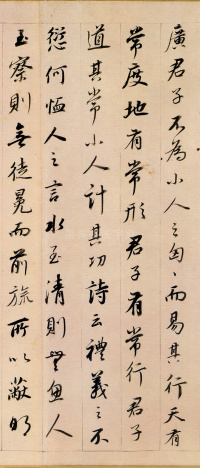 廣君子不為小人之匈〻而易其行天有
常度地有常形君子有常行君子
道其常小人計其功詩云禮義之不
愆何恤人之言水至清則無魚人
至察則無徒冕而前旒所以蔽明